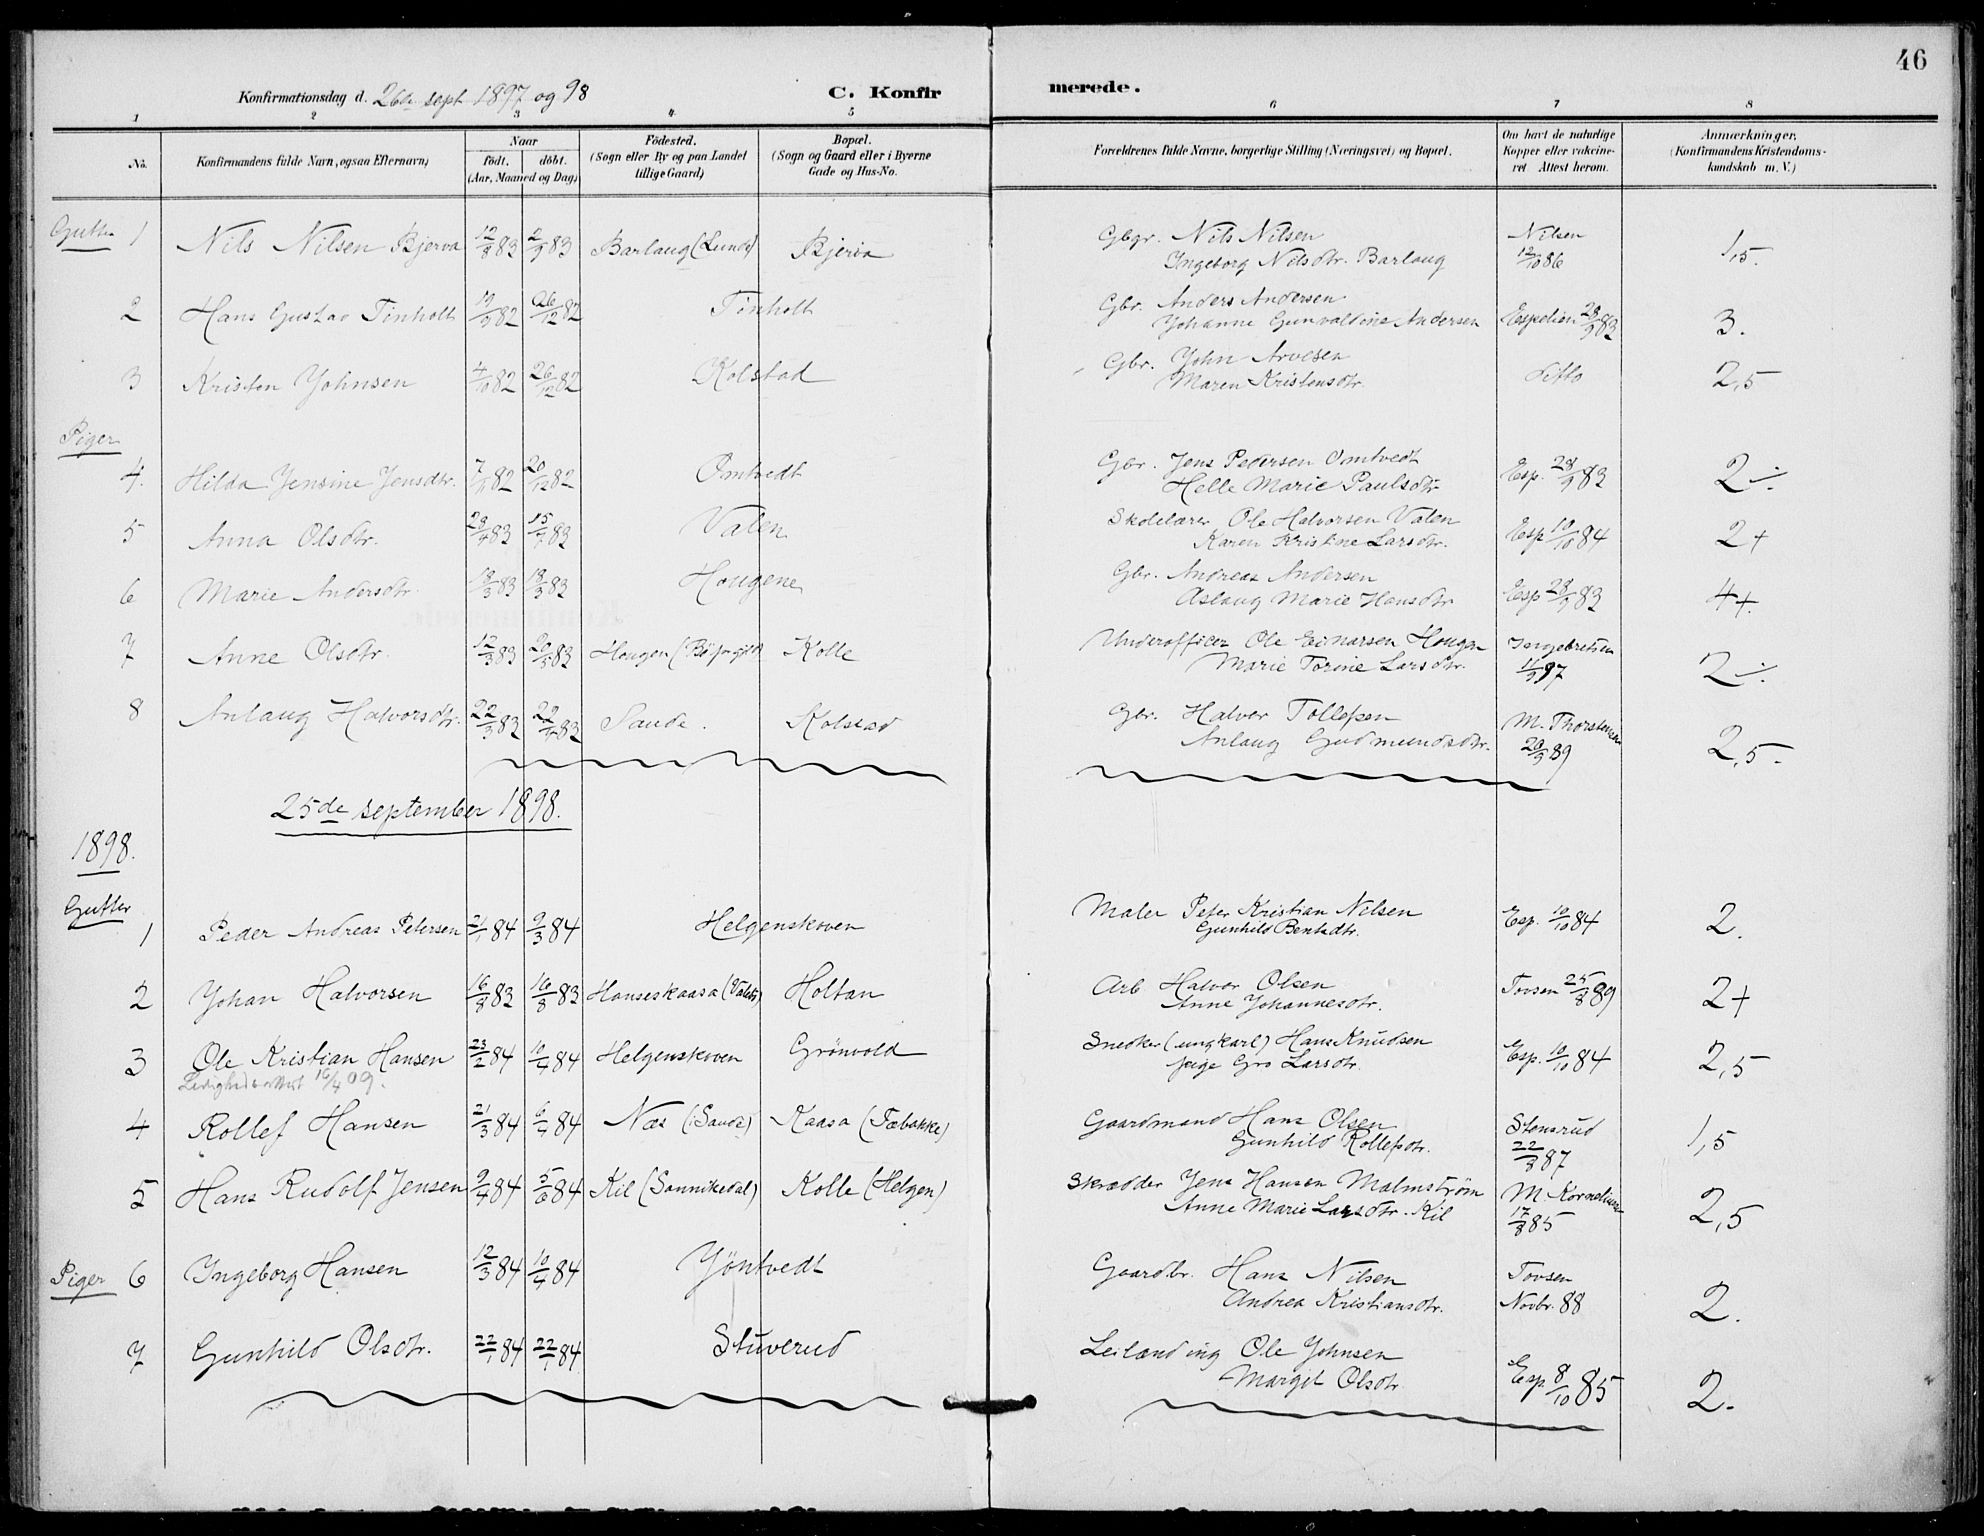 46
Konfirmationsdag d. 26de sept 1897 og 98 C. Konfirmerede.
1 2 3 4 5 6 7 8
No. Konfirmandens fulde Navn, ogsaa Efternavn) Naar født. døbt. (Aar, Maaned og Dag) Fødested. (Sogn eller By og paa Landet tillige Gaard) Bopæl. (Sogn og Gaard eller i Byerne Gade og Hus-No. Forældrenes fulde Navne, borgerlige Stilling (Næringsvei) og Bopæl. Om havt de naturlige Kopper eller vakcineret Attest herom. Anmærkninger. (Konfirmandens Kristendomskundskab m. V.)
Gutter 1 Nils Nilsen Bjerva 12/8 83 2/9 83 Barlaug (Lunde) Bjerva Gbgr. Nils Nilsen Nilsen 1,5.
Ingeborg Nilsdtr. Barlaug 12/10 86
2 Hans Gustav Tinholt 19/9 82 26/12 82 Tinholt Gbr. Anders Andersen Espelien 28/9 83 3.
Johanne Gunvaldine Andersen
3 Kristen Johnsen 4/10 82 26/12 82 Kolstad Gbr. John Arvesen ditto 2,5
Maren Kristensdtr.
Piger
4. Hilda Jensine Jensdtr. 7/11 82 20/12 82 Omtvedt Gbr. Jens Pedersen Omtvedt Esp. 28/9 83 2 ÷
Helle Marie Paulsdtr
5 Anna Olsdtr. 83 15/7 83 Valen Skolelærer Ole Halvorsen Valen Esp 10/10 84 2+
Karen Kristine Larsdtr.
6 Marie Andersdtr. 18/3 83 18/3 83 Hougene Gbr. Andreas Andersen Esp 28/9 83 4+
Aslaug Marie Hansdtr
7 Anne Olsdtr. 12/3 83 20/5 83 Hougen Kolle Underofficer Ole Einarsen Hougen Ingebretsen 2 ÷
Marie Torine Larsdtr. 97
8 Anlaug Halvorsdtr. 22/3 83 22/4 83 Saude. Kolstad Gbr. Halvor Tollefsen M. Thorstensen 2,5.
Anlaug Gudmundsdtr. 20/9 89
25de september 1898.
1898.
Gutter
1 Peder Andreas Petersen 21/1 84 9/3 84 Helgenskoven Maler Peter Kristian Nilsen Esp. 10/10 84 2.
Gunhild Bentsdtr.
2 Johan Halvorsen 16/8 83 16/8 83 Hanseskaasa (Valebø) Holtan Arb Halvor Olsen Tovsen 25/8 89 2+
Anne Johannesdtr.
3 Ole Kristian Hansen 23/2 84 10/4 84 Helgenskoven Grönvold Snedker (ungkarl) Hans Knudsen Esp. 10/10 84 2,5
Ledighedsattest 16/4 09. pige Gro Larsdtr.
4 Rollef Hansen 21/3 84 6/4 84 Næs (Saude) Kaasa (Tæbakke) Gaardmand Hans Olsen Stensrud 1,5
Gunhild Rollefsdtr. 22/8 87
5 Hans Rudolf Jensen 9/4 84 5/6 84 Kil (Sannikedal) Kolle (Helgen) Skrædder Jens Hansen Malmström M. Korneliusen 2,5
Anne Marie Larsdtr. Kil 17/8 85
Piger 6 Ingeborg Hansen 12/3 84 10/4 84 Jöntvedt Gaardbr. Hans Nilsen Tovsen 2.
Andrea Kristiansdtr. Novbr. 88
7 Gunhild Olsdtr. 22/1 84 22/1 84 Stuverud Leilænding Ole Johnsen Esp 8/10 85 2.
Margit Olsdtr